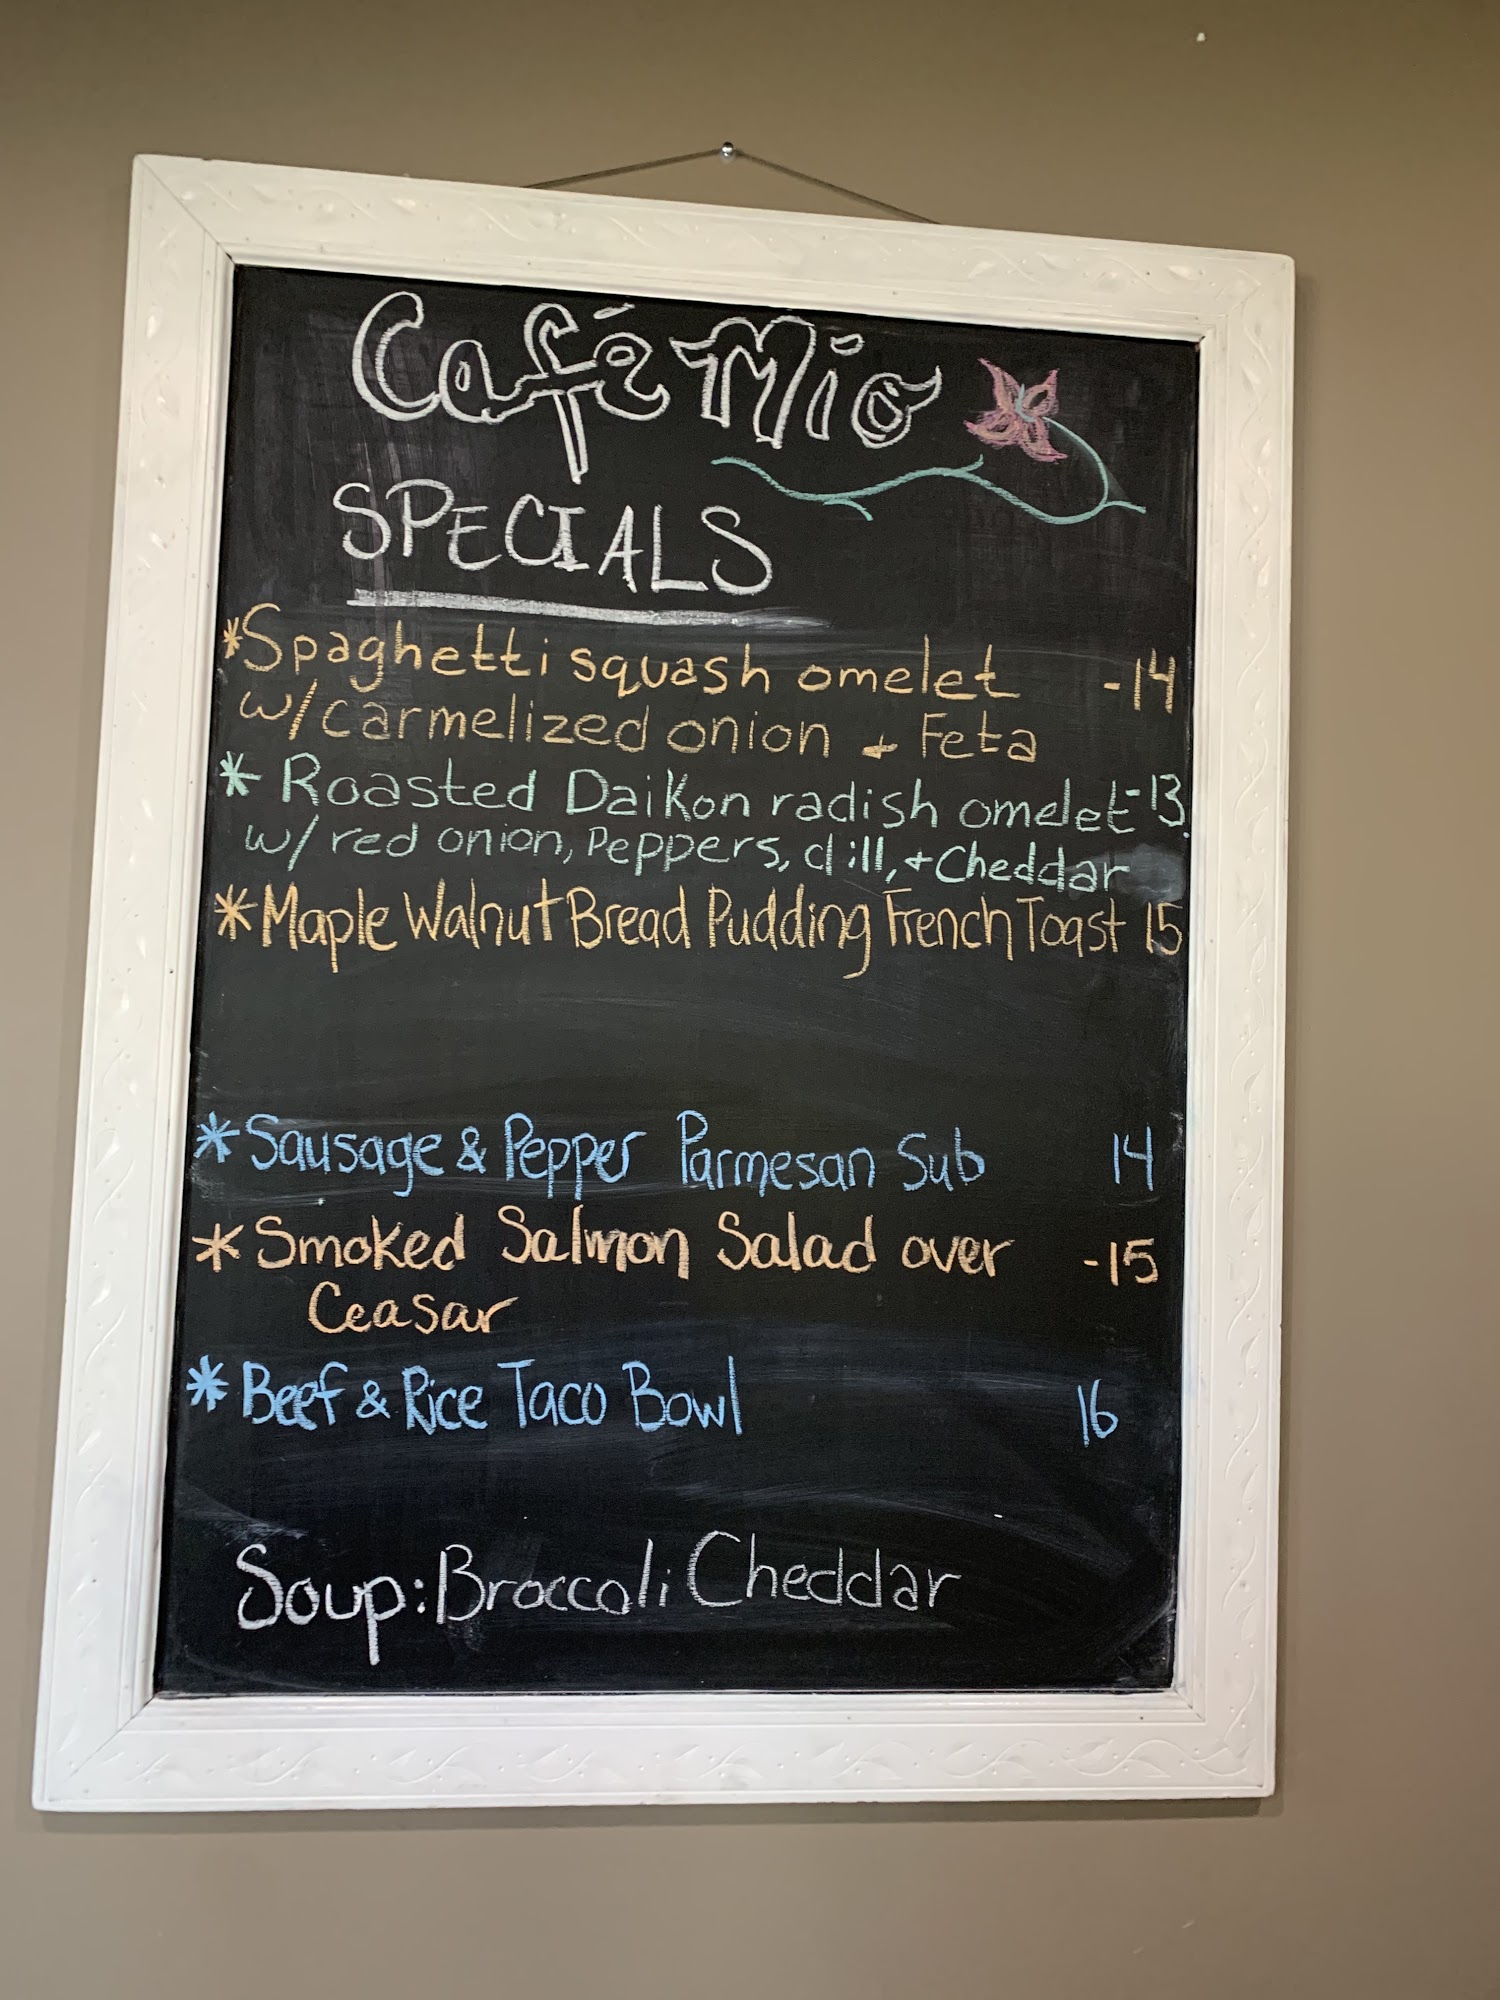 Café Mio
SPECIALS
*Spaghetti squash omelet -14
w/carmelized onion + Feta
* Roasted Daikon radish omelet -13
w/ red onion, Peppers, dill, + Cheddar
*Maple Walnut Bread Pudding French Toast 15
*Sausage & Pepper Parmesan Sub 14
* Smoked Salmon Salad over -15
Ceasar
*Beef & Rice Taco Bowl 16
Soup: Broccoli Cheddar